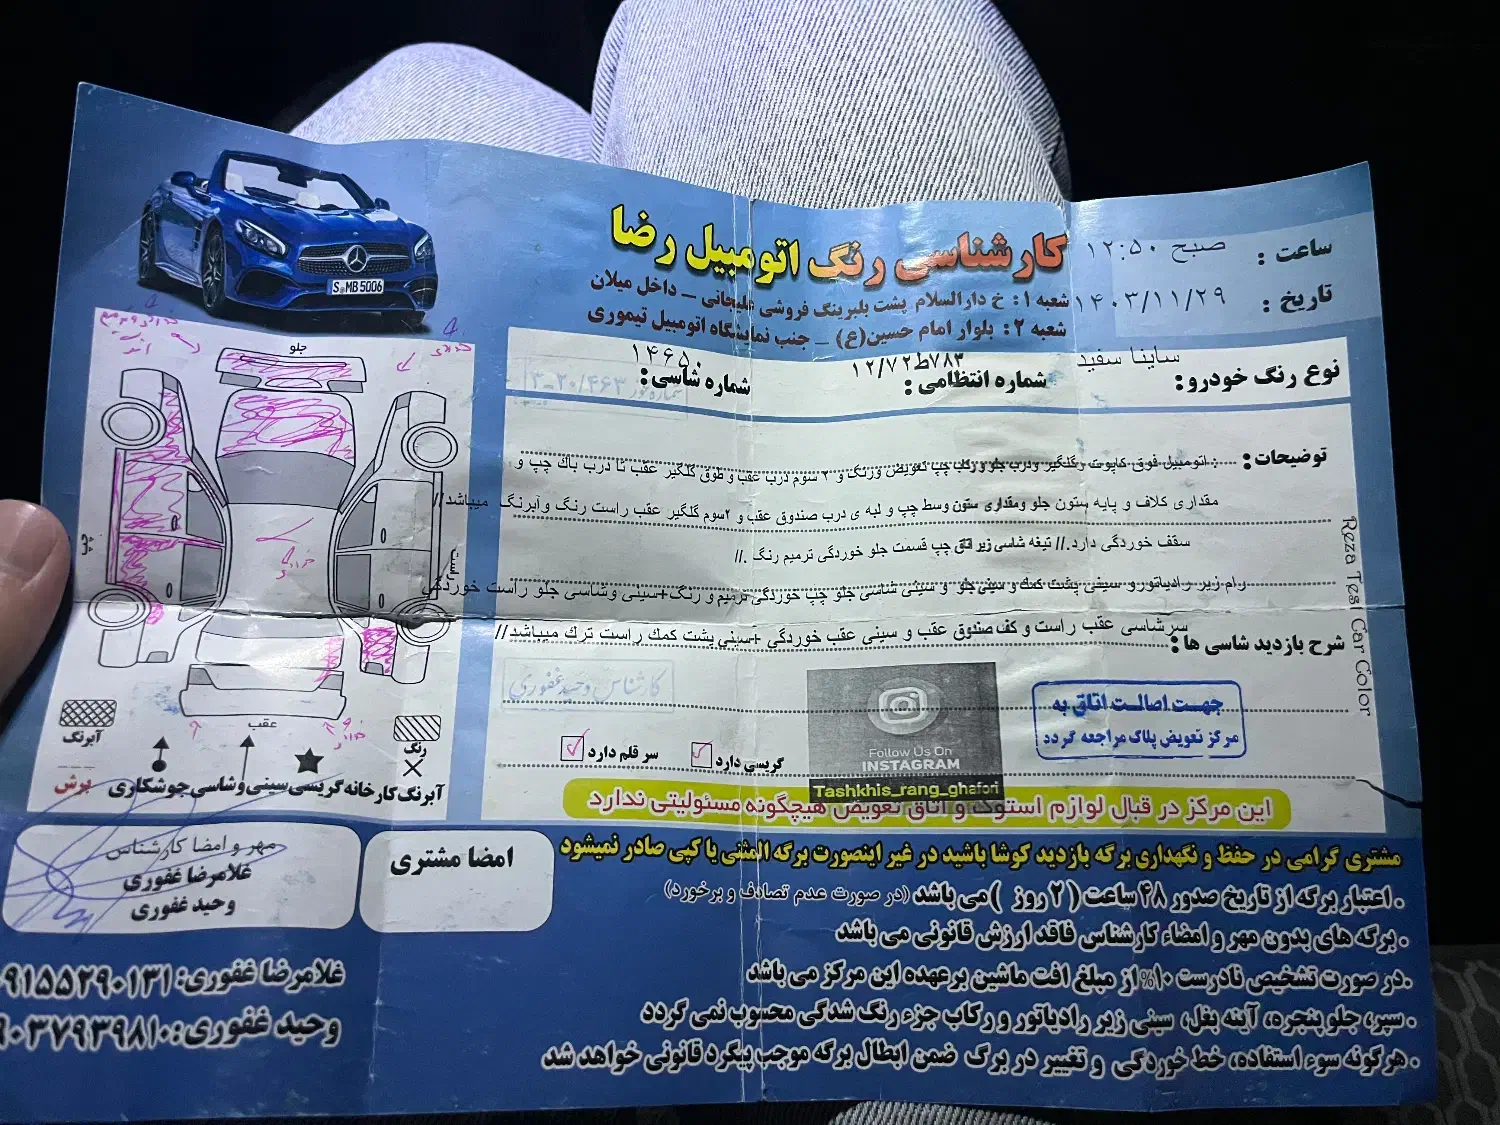 کارشناسی رنگ اتومبیل رضا
شعبه ۱: خ دارالسلام پشت بلبرینگ فروشی علیجانی – داخل میلان
شعبه ۲: بلوار امام حسین(ع) – جنب نمایشگاه اتومبیل تیموری
ساعت : ۱۲:۵۰ صبح
تاریخ : ۱۴۰۳/۱۱/۲۹
نوع رنگ خودرو: ساینا سفید
شماره انتظامی : ۱۲/۷۲ط۷۸۳
شماره شاسی: ۱۴۶۵۰
توضیحات: اتومبیل فوق کاپوت و گلگیر ودرب جلو و رکاب چپ تعویض ورنگ و ۲ سوم درب عقب و طوق گلگیر عقب تا درب باک چپ و
مقداری کلاف و پایه ستون جلو ومقداری ستون وسط چپ و لبه ی درب صندوق عقب و ۲سوم گلگیر عقب راست رنگ وآبرنگ میباشد//
سقف خوردگی دارد.// تیغه شاسی زیر اتاق چپ قسمت جلو خوردگی ترمیم رنگ .//
رام زیر رادیاتورو سینی پشت کمک و سینی جلو و سینی شاسی جلو چپ خوردگی ترمیم و رنگ+سینی وشاسی جلو راست خوردگی
شرح بازدید شاسی ها : سرشاسی عقب راست و کف صندوق عقب و سینی عقب خوردگی +سینی پشت کمک راست ترک میباشد//
کارشناس وحید غفوری
جهت اصالت اتاق به
مرکز تعویض پلاک مراجعه گردد
Follow Us On
INSTAGRAM
Tashkhis_rang_ghafori
گریسی دارد
سر قلم دارد
این مرکز در قبال لوازم استوک و اتاق تعویض هیچگونه مسئولیتی ندارد
Reza Tes Car Color
S MB 5006
جلو
چپ
راست
عقب
رنگ
آبرنگ
آبرنگ کارخانه
گریسی
سینی و شاسی
جوشکاری
برش
مهر و امضا کارشناس
غلامرضا غفوری
وحید غفوری
امضا مشتری
مشتری گرامی در حفظ و نگهداری برگه بازدید کوشا باشید در غیر اینصورت برگه المثنی یا کپی صادر نمیشود
. اعتبار برگه از تاریخ صدور ۴۸ ساعت (۲ روز ) می باشد (در صورت عدم تصادف و برخورد)
. برگه های بدون مهر و امضاء کارشناس فاقد ارزش قانونی می باشد
.در صورت تشخیص نادرست ۱۰% از مبلغ افت ماشین برعهده این مرکز می باشد
. سپر، جلو پنجره، آینه بغل، سینی زیر رادیاتور و رکاب جزء رنگ شدگی محسوب نمی گردد
. هرگونه سوء استفاده، خط خوردگی و تغییر در برگ ضمن ابطال برگه موجب پیگرد قانونی خواهد شد
غلامرضا غفوری: ۰۹۱۵۵۲۹۰۱۳۱
وحید غفوری: ۹۰۳۷۹۳۹۸۱۰